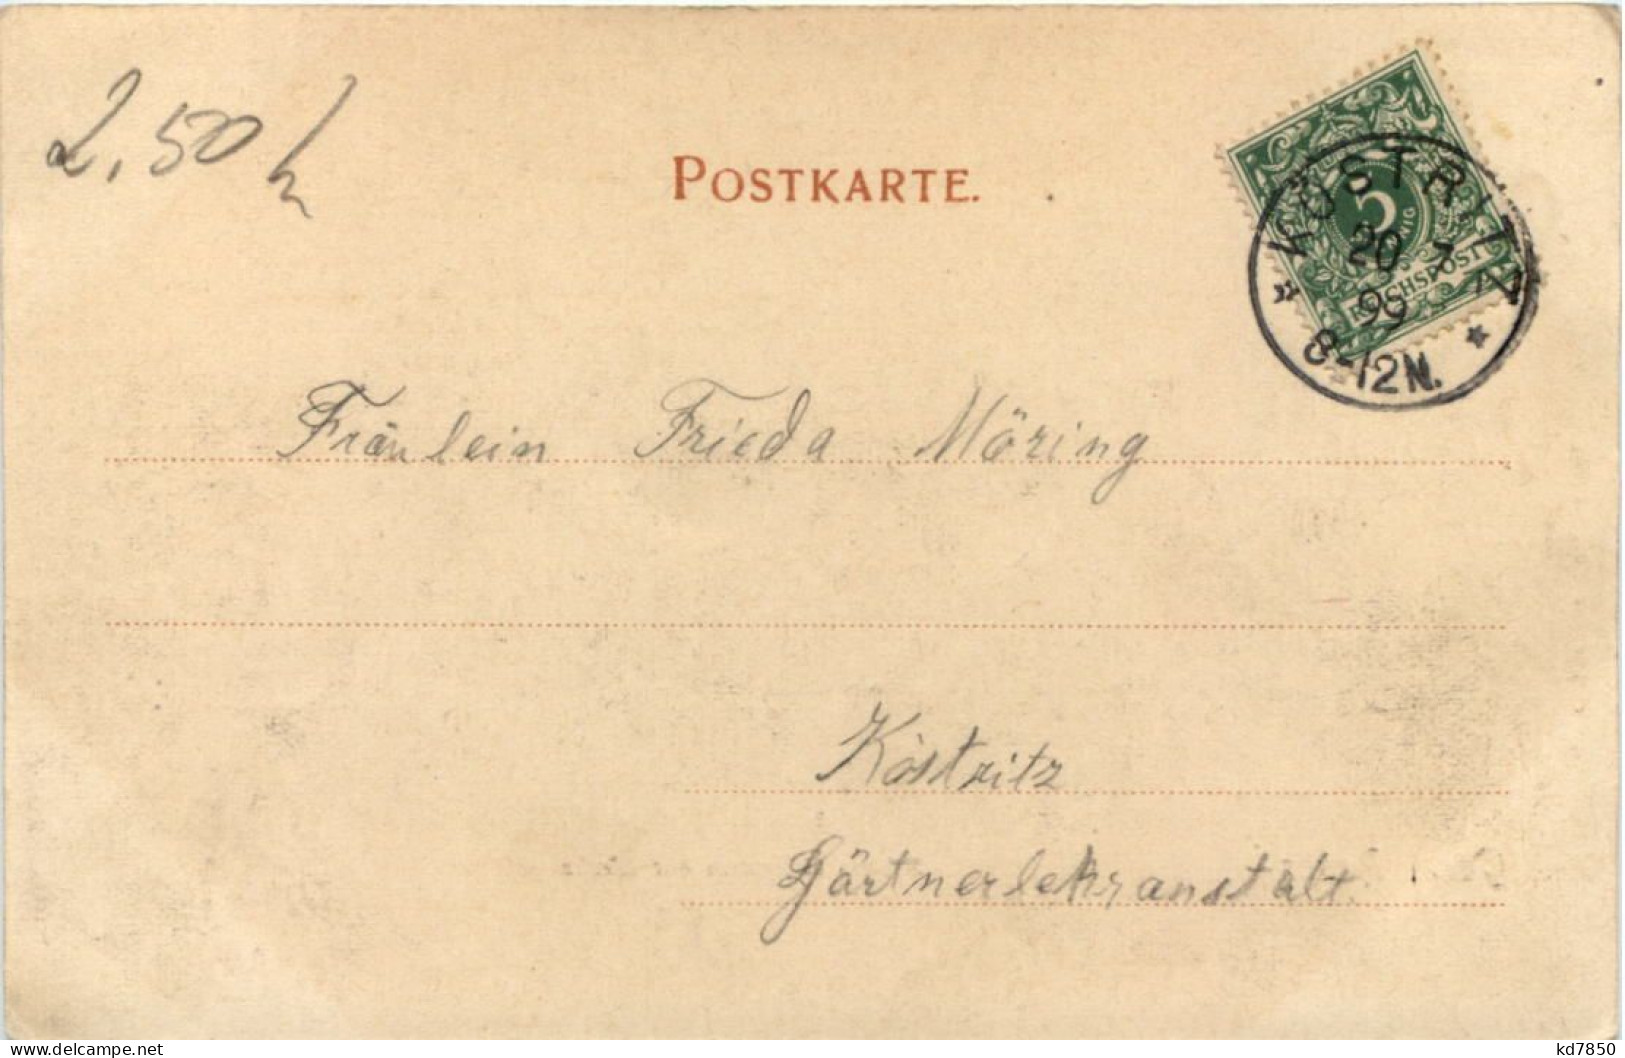 2,50
POSTKARTE.
KÖSTRITZ
5
PFENNIG
REICHSPOST
20 7
99
8-12N.
Fräulein Frieda Möring
Köstritz
Gärtnerlehranstalt.
kd7850